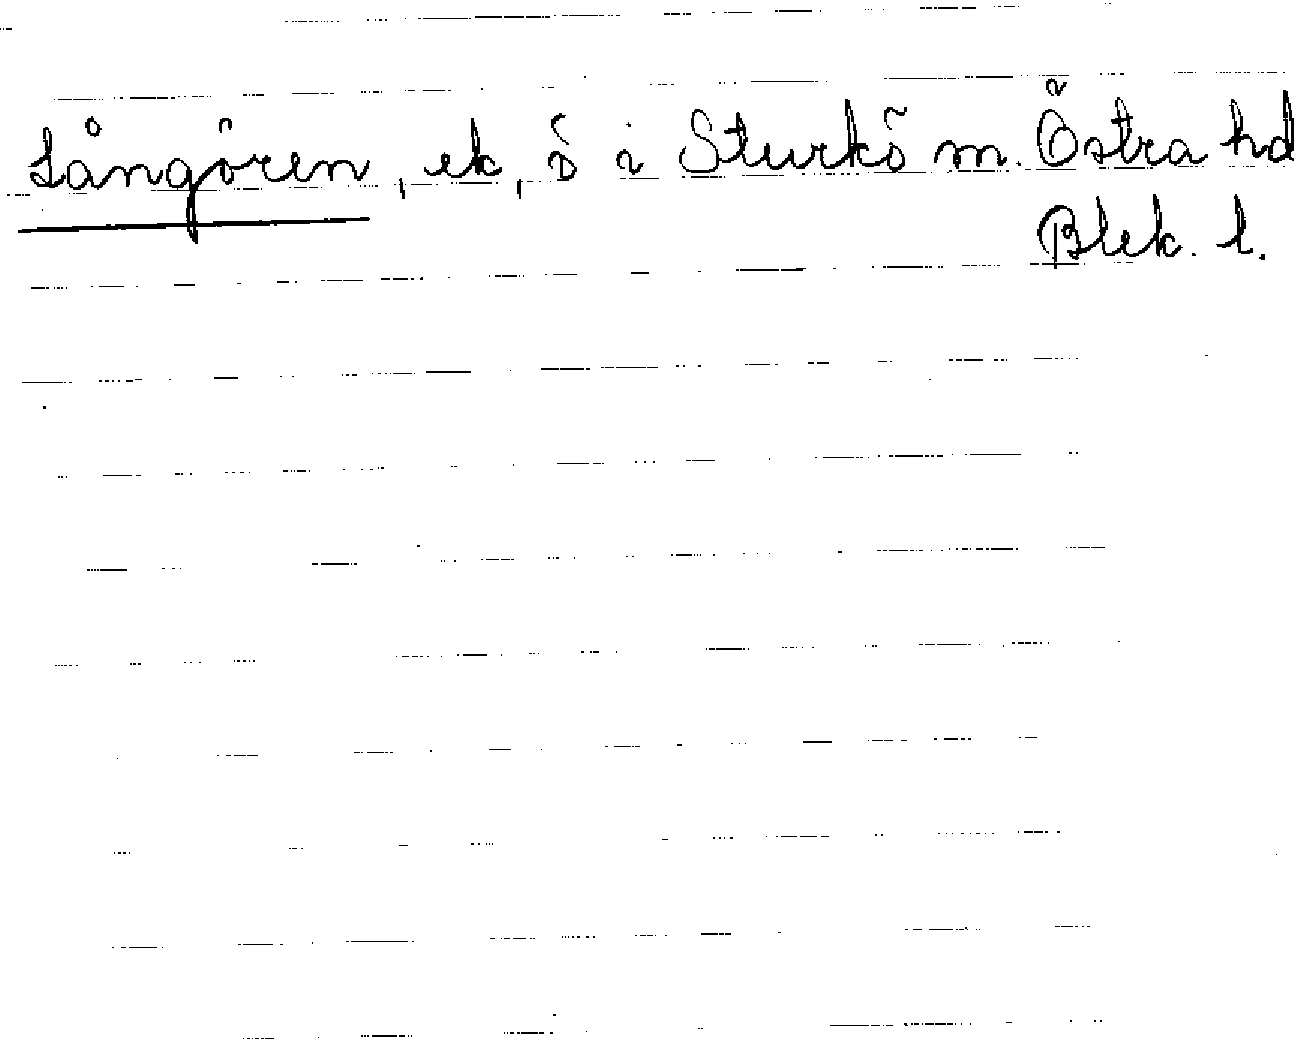 Långören, ek, ö i Sturkö m. Östra hd
Blek. l.